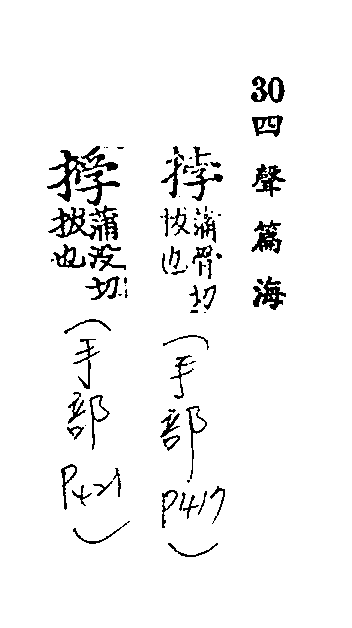 30四聲篇海
挬
蒲骨切
拔也
(手部 P417)
㩀
蒲没切
拔也
(手部 P421)